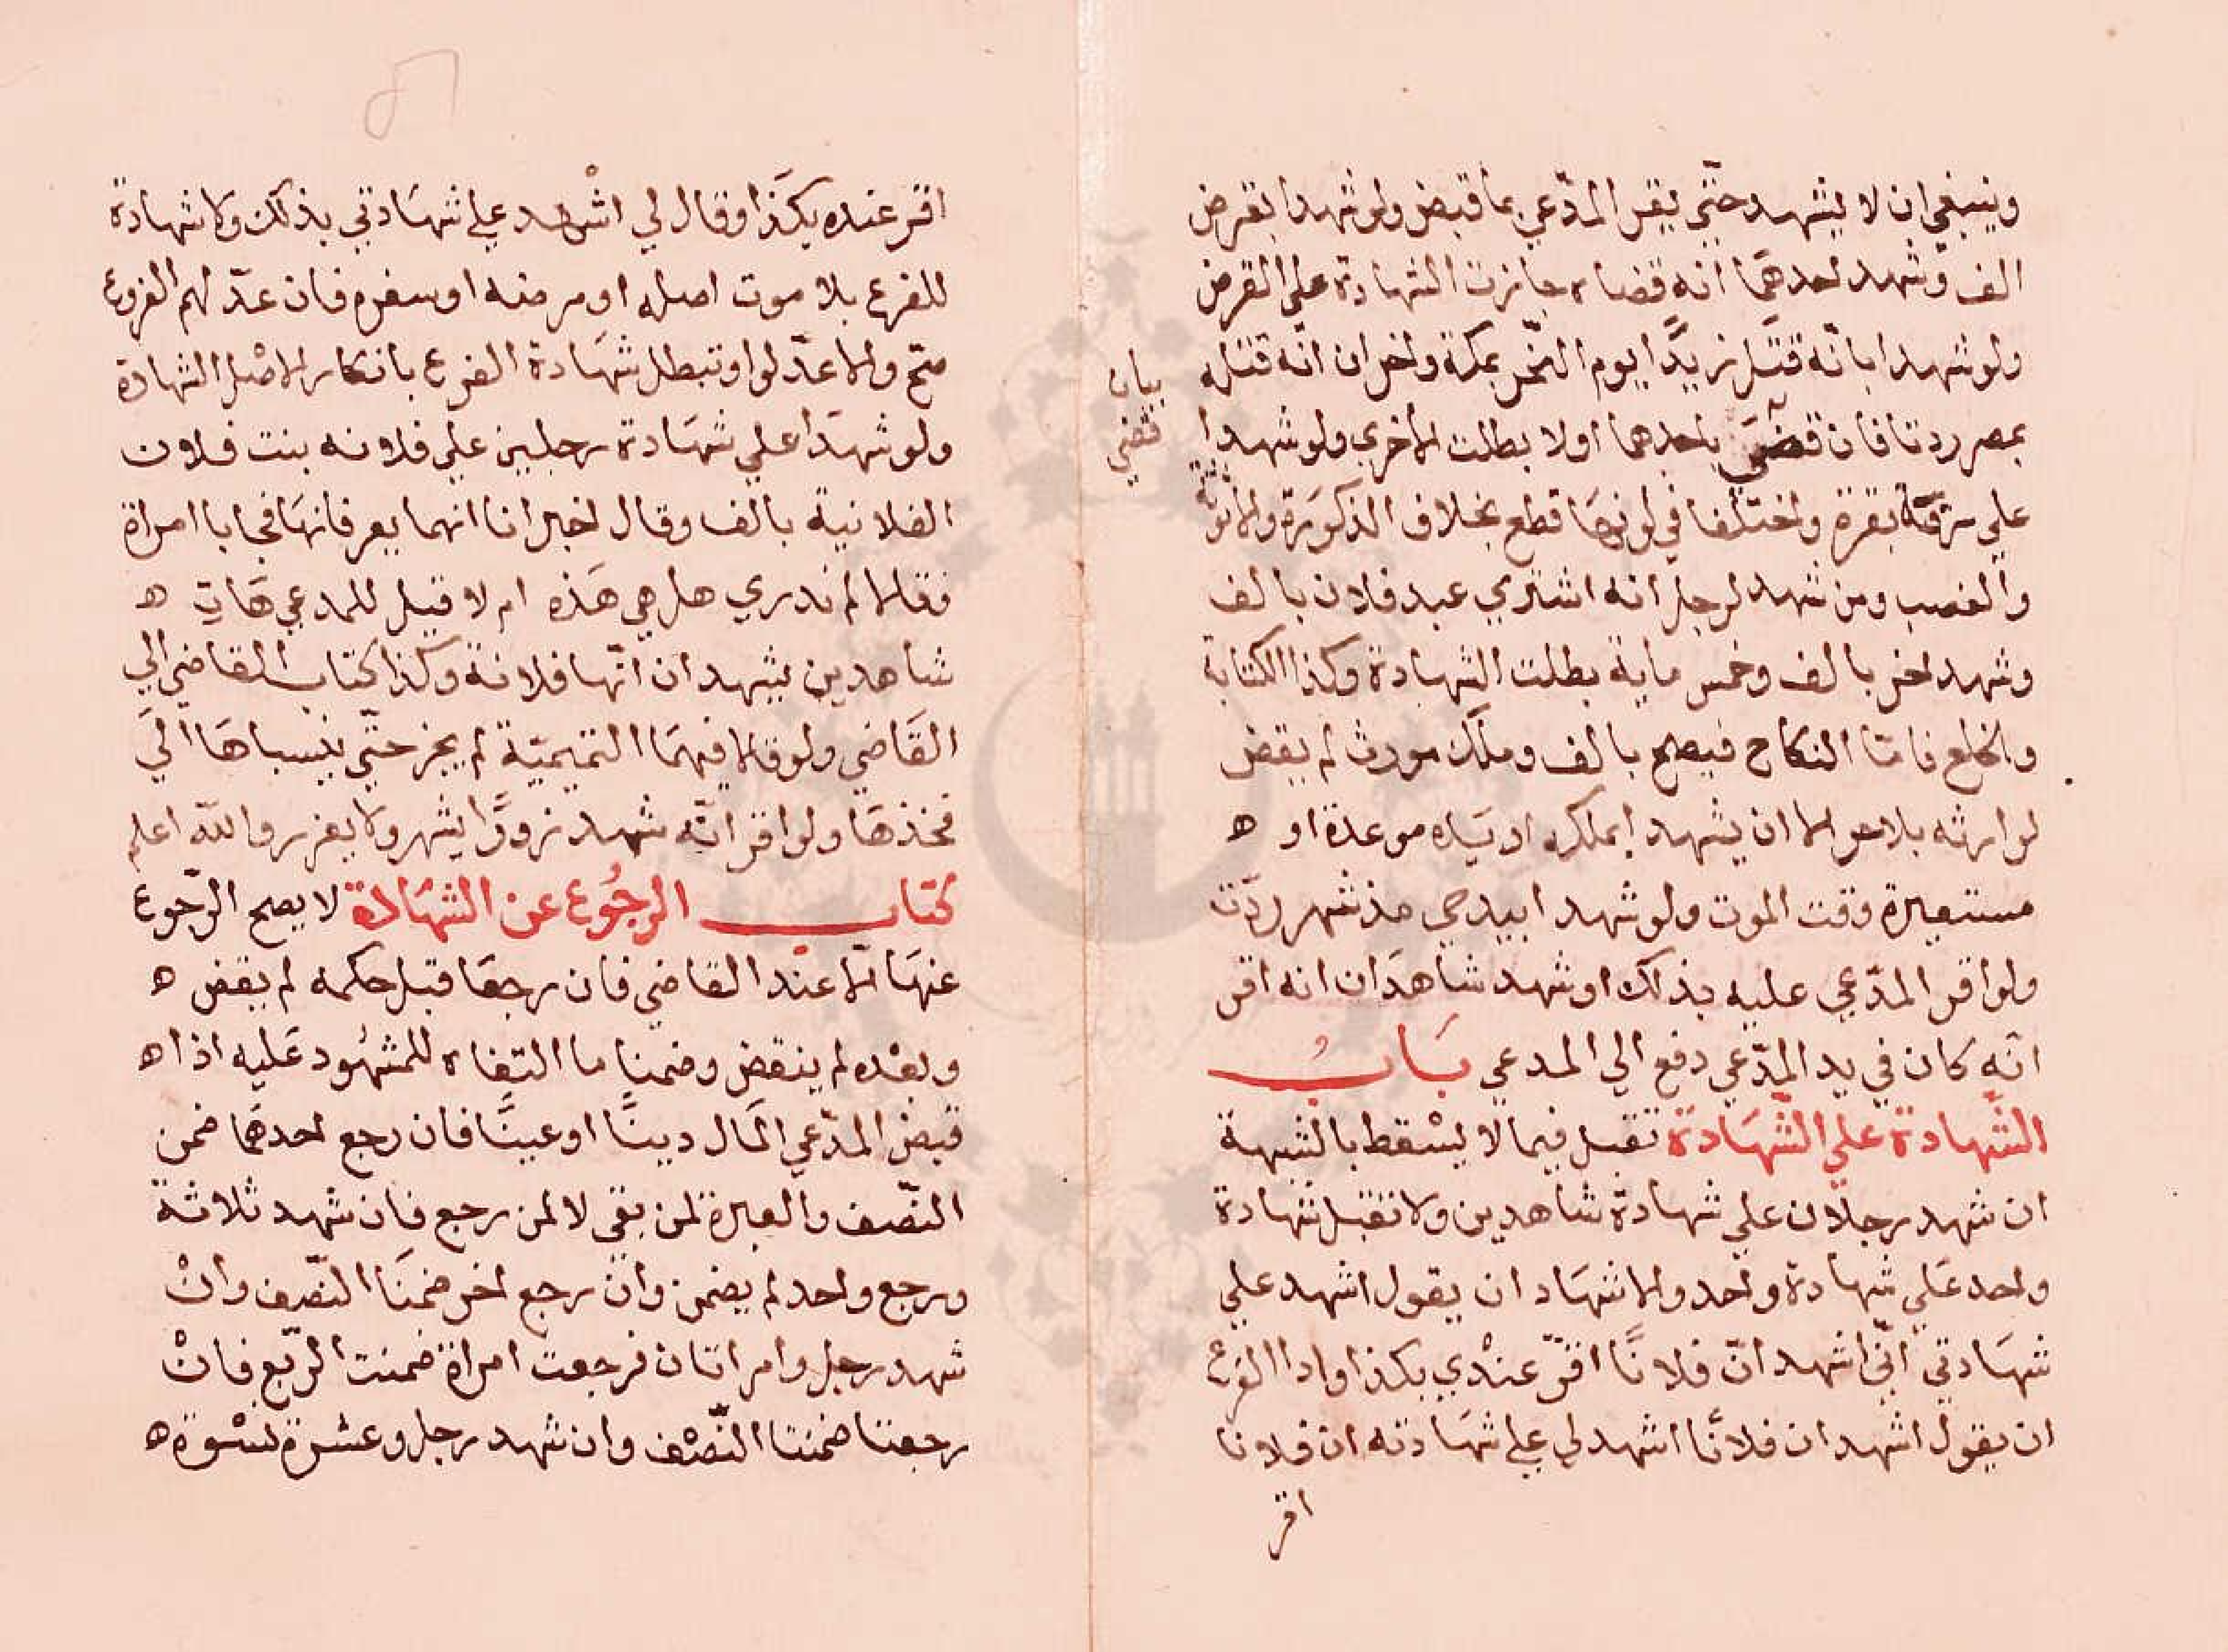 وينبغي ان لا يشهد حتّى يقر المدّعي بما قبض ولو شهدا بقرض
الف وشهد احدهما انه قضاه جازت الشهادة على القرض
ولو شهدا بانّه قتل زيدًا يوم النحر بمكة واخران انّه قتله
بمصر ردتا فان قضى باحدهما اولا بطلت الاخرى ولو شهدا
بيان
قضي
على سرقة بقرة واختلفا في لونها قطع بخلاف الذكورة والانوثة
والغصب ومن شهد لرجل انه اشتري عبد فلان بالف
وشهد اخر بالف وخمس ماية بطلت الشهادة وكذا الكتابة
والخلع فامّا النكاح فيصح بالف وملك مورث لم يقض
لوارثه بلا هو الا ان يشهدا بملكه او يده موعدة او ه
مستعيرة وقت الموت ولو شهدا بيد حي مذ شهر ردّت
ولو اقر المدّعي عليه بذلك او شهد شاهدان انه اقر
انّه كان في يد المدّعي دفع الي المدعي بَابُ
الشّهادة علي الشّهَادة تقبل فيما لا يسْقط بالشبهة
ان شهد رجلان علي شهادة شاهدين ولا تقبل شهادة
واحد عَلي شهادة واحد والاشهَاد ان يقول اشهد علي
شهَادتي انّي اشهد انّ فلانًا اقرّ عندْي بكذا وادا الفرع
ان يقول اشهد ان فلانًا اشهدلي علي شهَادته ان فلانا
اقر
اقر عنده بكذَا وقال لي اشْهد علي شهَادتي بذلك ولا شهادة
للفرع بلا موت اصله او مرضه او سفره فان عدّلهم الفروع
صّح والا عدّلوا وتبطل شهَادة الفرع بانكار الاصْل الشهادة
ولو شهدَا علي شهَادة رجلين علي فلانه بنت فلان
الفلانية بالف وقال اخبرانا انهما يعرفانهَا فجابا امراة
فقالا لم ندري هل هي هَذه ام لا قيل للمدعي هَات ه
شاهدين يشهدان انّها فلانة وكذا كتاب القاضي الي
القَاضي ولو قالا فيهمَا التميميّة لم يجز حتّي ينسباهَا الَي
فخذهَا ولو اقر انّه شهد زورًا يشهر ولا يعزر والله اعلم
كتاب الرجُوع عن الشهَادة لا يصح الرّجوع
عنهَا الّا عند القاضي فان رجعَا قبل حكمه لم يقض ه
وبعْده لم ينقض وضمنا ما اتلفاه للمشهُود عَليه اذا ه
قبض المدّعي المَال دينًا او عينًا فان رجع احدهَما ضمن
النّصف والعبرة لمن بقي لا لمن رجع فان شهد ثلاثة
ورجع واحد لم يضمن وان رجع اخر ضمنَا النّصف وانْ
شهد رجل وامراتان فرجعت امراة ضمنت الرّبع فانْ
رجعتا ضمنتا النّصْف وان شهد رجل وعشرة نسْوة ه